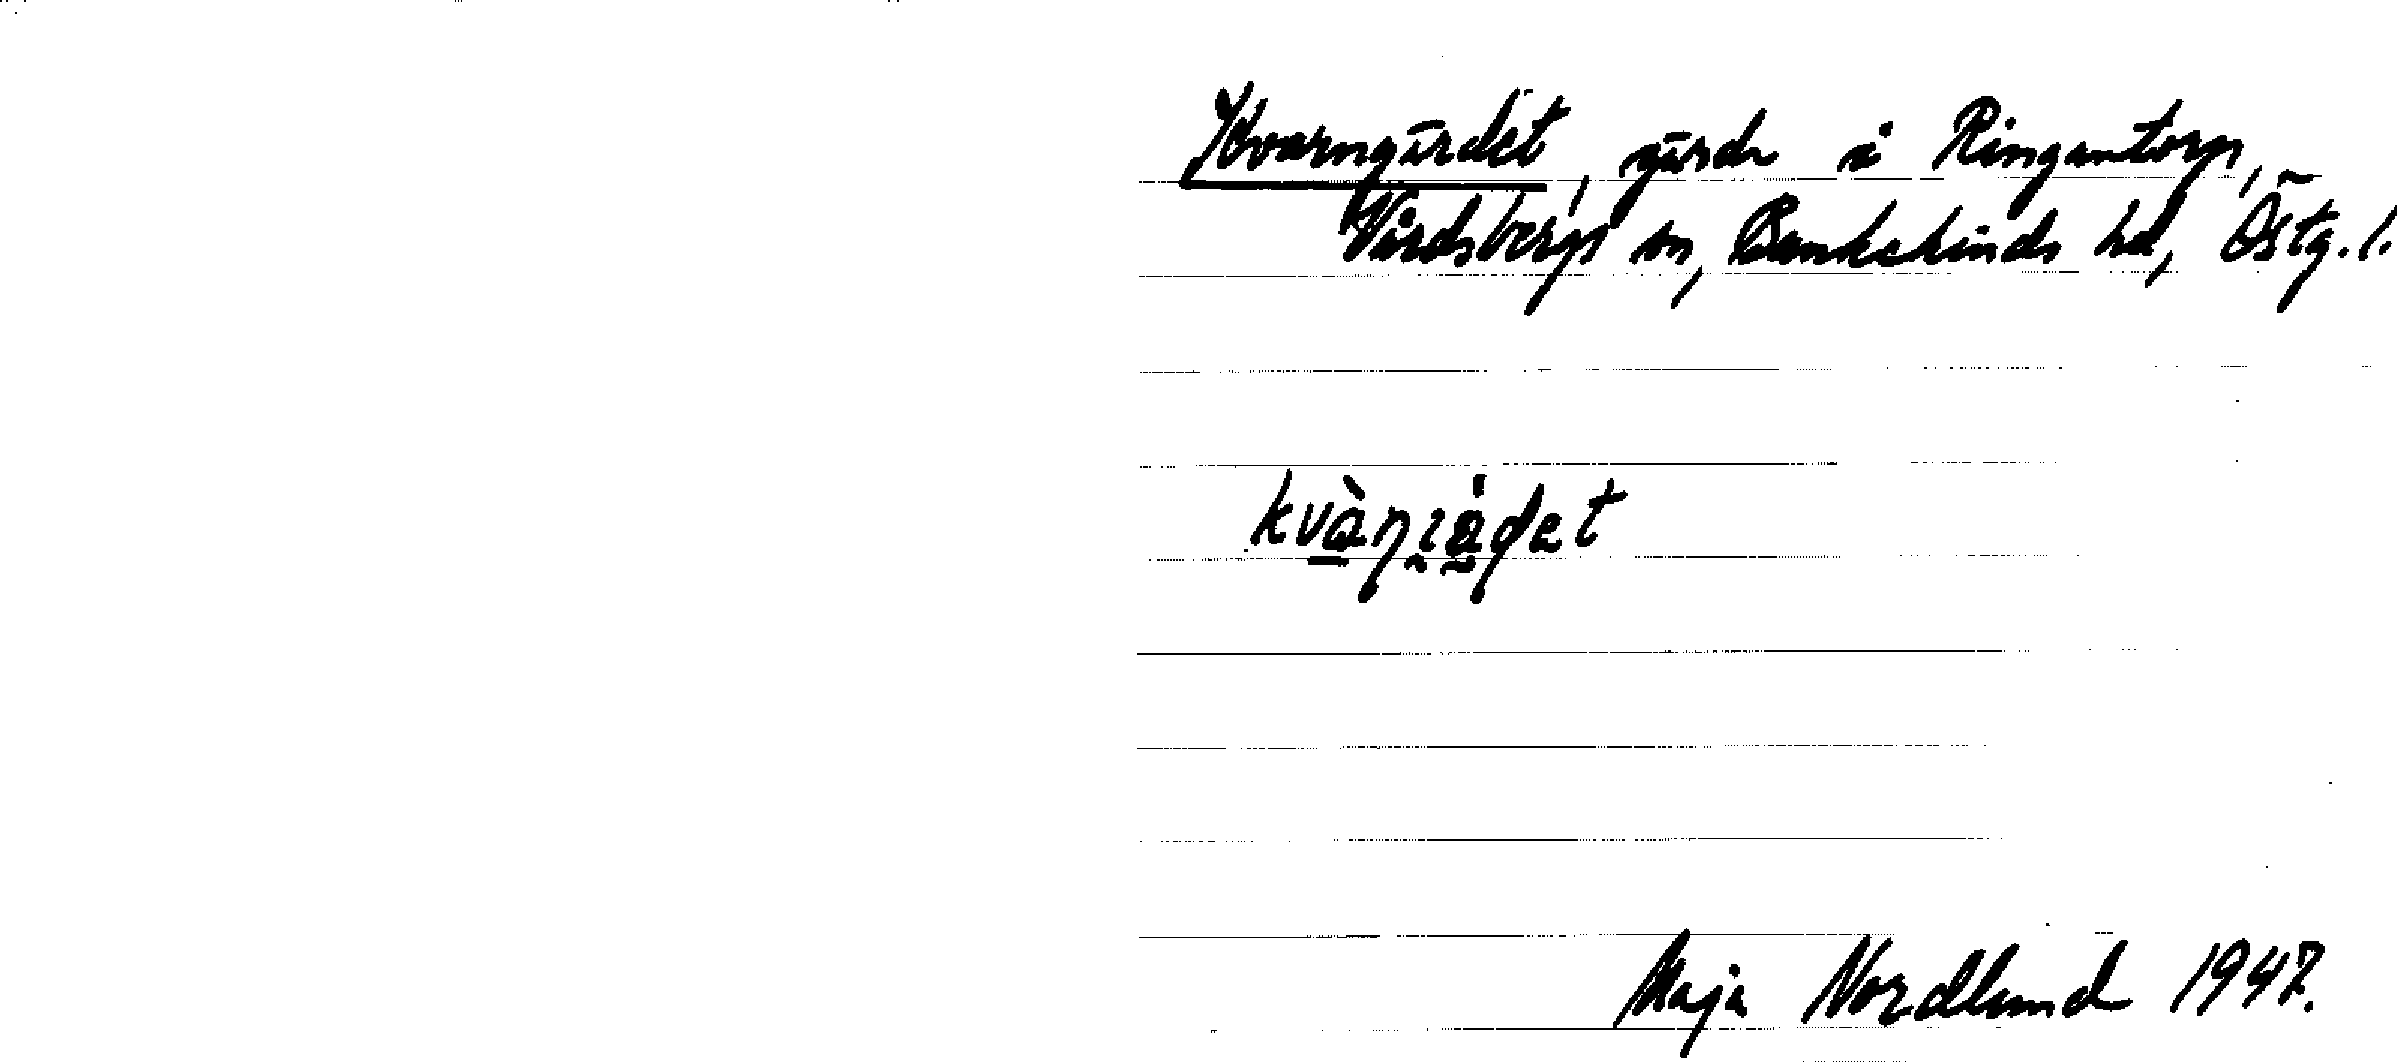 Kvarngärdet, gärde å Ringantorp,
Vårdsbergs sn, Bankekinds hd, Östg. l.
Maja Nordlund 1947.